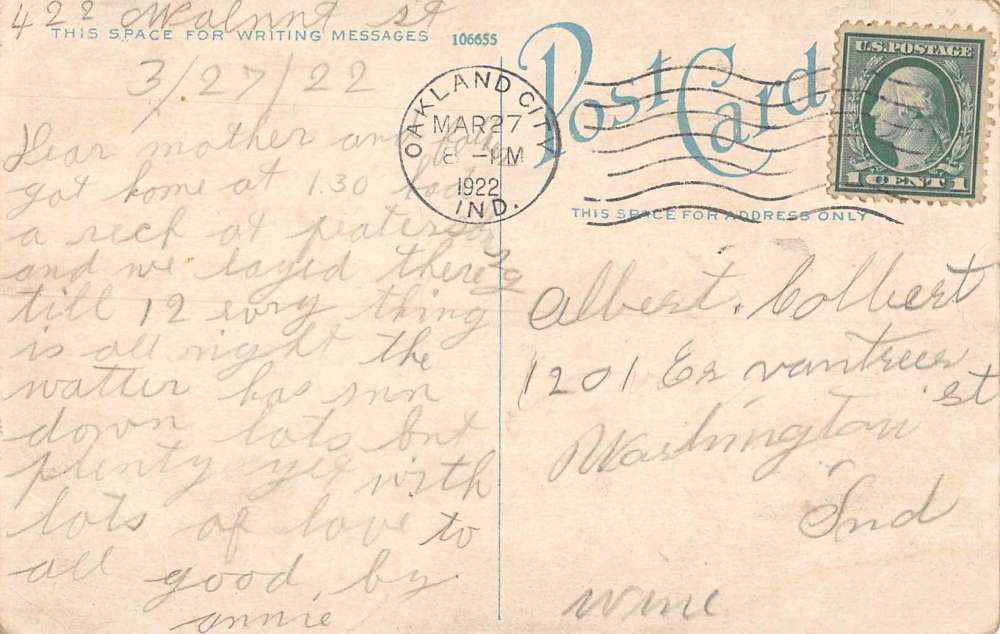 422 Walnut st
THIS SPACE FOR WRITING MESSAGES
106655
3/27/22
Dear mother and
got home at 1.30 had
a reck at peatersburg
and we layed there
till 12 evry thing
is all right the
watter has run
down lots but
plenty yet with
lots of love to
all good by
annie
Post Card
OAKLAND CITY
MAR 27
8 - PM
1922
IND.
U.S. POSTAGE
1 CENT 1
THIS SPACE FOR ADDRESS ONLY
Albert. Colbert
1201 Es vantrees
st
Washington
Ind